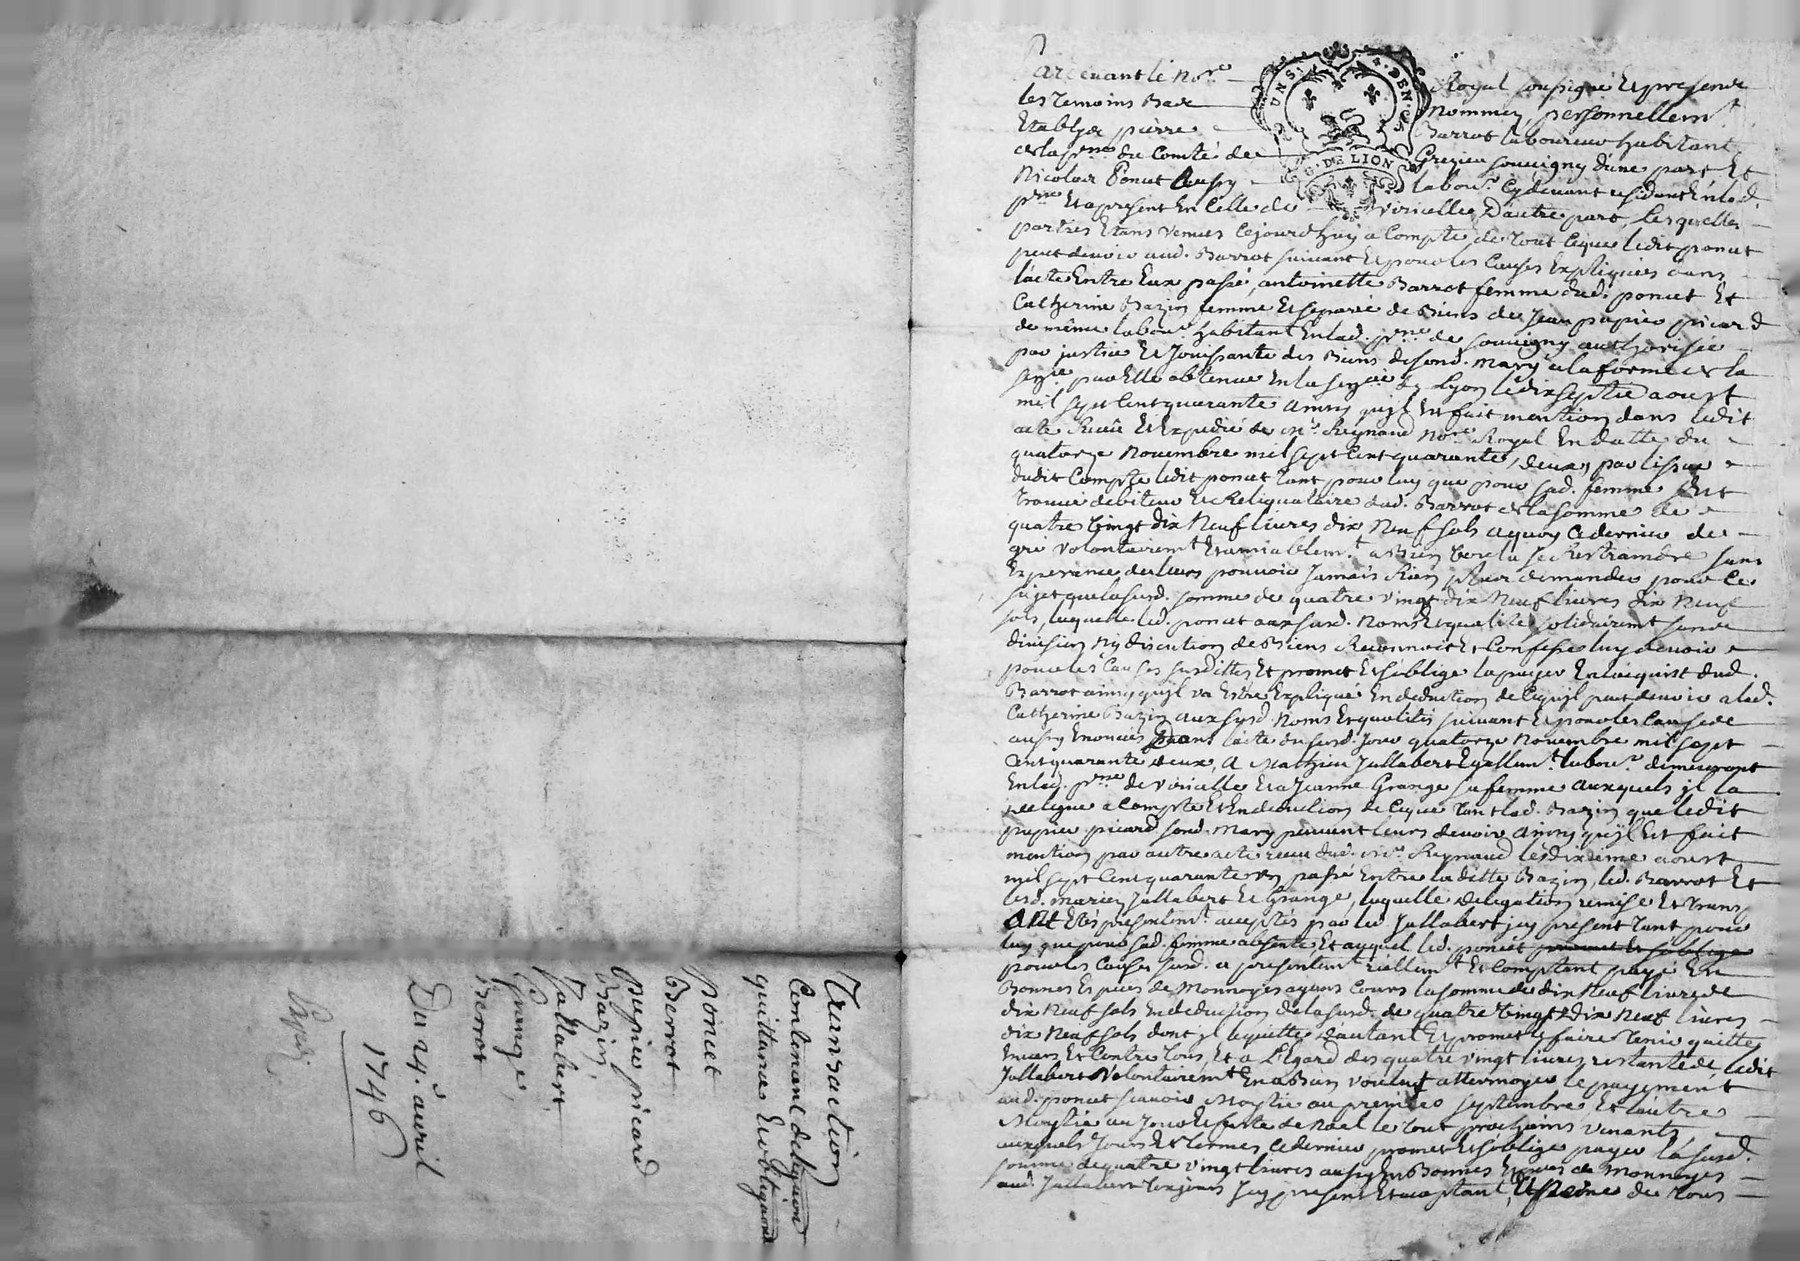 Pardevant le No.re Royal soussigné Et presence
les Temoins Bas Nommez, personnellem.t
Etably pierre Barrot laboureur habitant
de la p.sse du Comté de Grezieu souvigny d'une part Et
Nicolas Poncet Aussy labou.r Cydevant residant En lad.
p.sse Et apresent En Celle de Viricelles D'autre part, Lesquelles
parties Etans venues Cejourd'huy a Compte de Tout Ceque ledit poncet
peut devoir aud. Barrot suivant Et pour les Causes Expliquées dans
l'acte Entre Eux passé, antoinette Barrot femme dud. poncet Et
Catherine Bazin femme Et separée de Biens de Jean papier picard
de même labou.r habitant En lad. p.sse de souvigny authorisée
par justice Et Jouissante des Biens de sond. mary a la forme de la
par Elle obtenue En la de Lyon le dix septie aoust
mil sept Cent quarante ainsy qu'jl Est fait mention dans ledit
acte Receu Et Expedié de M.e Reynaud No.re Royal En datte du
quatorze Novembre mil sept Cent quarante deux, par lissue
dudit Compte ledit poncet tant pour luy que pour sad. femme s'Est
trouvé debiteur Et Reliquataire aud. Barrot de la somme de
quatre Vingt dix Neuf livres dix Neuf sols a quoy Ce dernier de
gré volontairem.t Et amiablem.t a Bien voulu se Restraindre sans
Esperance de leurs pouvoir Jamais Rien plus demander pour Ce
sujet que la susd. somme de quatre vingt dix Neuf livres dix Neuf
sols, laquelle led. poncet aux susd. Noms Et qualité solidairem.t sans
division Ny discution de Biens Reconnoit Et Confesse luy devoir
pour les Causes susdittes Et promet Et s'oblige la payer En l'acquit dud.
Barrot ainsy qu'jl va Estre Expliqué En deduction de Ce qu'jl peut devoir a lad.
Catherine Bazin aux susd. Noms Et qualités suivant Et pour les Causes de
aussy Enoncées dans l'acte du susd. Jour quatorze Novembre mil sept
Cent quarante deux, A Mathieu Jullabert Egallem.t labou.r demeurant
En lad. p.sse de Viricelle Et a Jeanne Grange sa femme auxquels jl la
delegue a Compte Et En deduction de Ceque Tant lad. Bazin que ledit
papier picard sond. mary peuvent leurs devoir ainsy qu'jl Est fait
mention par autre acte receu dud. M.e Reynaud le dixième aoust
mil sept Cent quarante un passé Entre laditte Bazin, led. Barrot Et
lesd. mariez Jullabert Et Grange, laquelle delegation remise Et trans
ont Etés presentem.t acceptés par led. Jullabert jcy present Tant pour
luy que pour sad. femme absente, Et auquel led. poncet promet Et s'oblige
pour les Causes susd. a presentem.t réellem.t Et Comptant payé En
Bonnes Especes de Monnoyes ayans Cours la somme de dix Neuf livres
dix Neuf sols En deduction de la susd. de quatre Vingt dix Neuf livres
dix Neuf sols dont jl le quitte d'autant Et promet le faire Tenir quitte
Envers Et Contre Tous, Et a L'Egard des quatre vingt livres restantes ledit
Jullabert Volontairem.t En a Bien voulut attermoyer le payement
aud. poncet scavoir Moytié au premier septembre Et l'autre
Moytié au Jour Et feste de Noel le Tout prochains venants,
auxquels Jours Et termes Ce dernier promet Et s'oblige payer la susd.
somme de quatre vingt livres aussy En Bonnes Especes de Monnoyes
aud. Jullabert Toujours Jcy present Et acceptant, A peine de Tous
GEN. DE LION
Transaction
Contenant delegation
quittance Et obligation
poncet
Berrot
papier picard
Bazin
Jallabert
Grange,
Berrot
Du 24. avril
1746